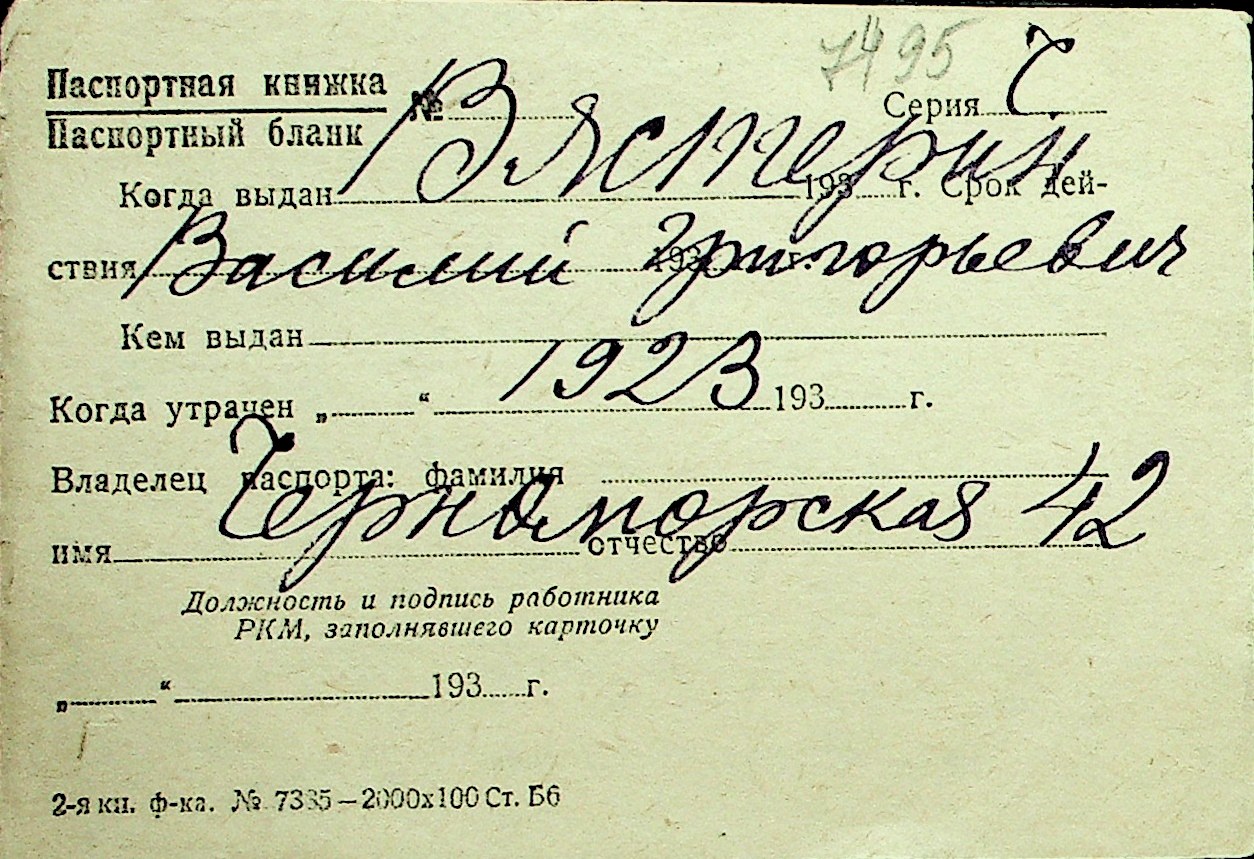 7495
Паспортная книжка № Серия Т
Паспортный бланк
Вястерин
Когда выдан 193 г. Срок дей-
ствия 193 г.
Василий Григорьевич
Кем выдан
1923
Когда утрачен „ “ 193 г.
Владелец паспорта: фамилия
Черноморская 42
имя отчество
Должность и подпись работника
РКМ, заполнявшего карточку
„ “ 193 г.
2-я кн. ф-ка. № 7335—2000х100 Ст. Б6